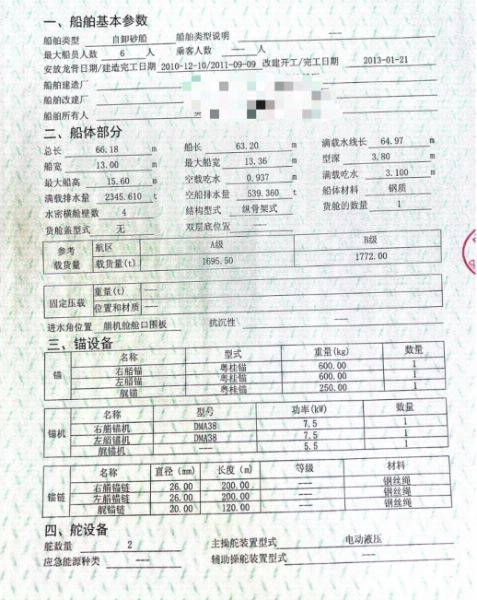 一、船舶基本参数
船舶类型 自卸砂船 船舶类型说明 ---
最大船员人数 6 人 乘客人数 --- 人
安放龙骨日期/建造完工日期 2010-12-10/2011-09-09 改建开工/完工日期 2013-01-21
船舶建造厂
船舶改建厂
船舶所有人
二、船体部分
总长 66.18 m 船长 63.20 m 满载水线长 64.97 m
船宽 13.00 m 最大船宽 13.36 m 型深 3.80 m
最大船高 15.60 m 空载吃水 0.937 m 满载吃水 3.100 m
满载排水量 2345.610 t 空船排水量 539.360 t 船体材料 钢质
水密横舱壁数 4 结构型式 纵骨架式 货舱的数量 1
货舱盖型式 无 双层底位置 ---
参考载货量 航区 A级 B级
载货量(t) 1695.50 1772.00
固定压载 重量(t) ---
位置和材质 ---
进水角位置 艏机舱舱口围板 抗沉性 ---
三、锚设备
锚 名称 型式 重量(kg) 数量
右艏锚 粤桂锚 600.00 1
左艏锚 粤桂锚 600.00 1
艉锚 粤桂锚 250.00 1
锚机 名称 型号 功率(kW) 数量
右艏锚机 DMA38 7.5 1
左艏锚机 DMA38 7.5 1
艉锚机 --- 5.5 1
锚链 名称 直径(mm) 长度(m) 等级 材料
右艏锚链 26.00 200.00 --- 钢丝绳
左艏锚链 26.00 200.00 --- 钢丝绳
艉锚链 20.00 120.00 --- 钢丝绳
四、舵设备
舵数量 2 主操舵装置型式 电动液压
应急能源种类 --- 辅助操舵装置型式 ---